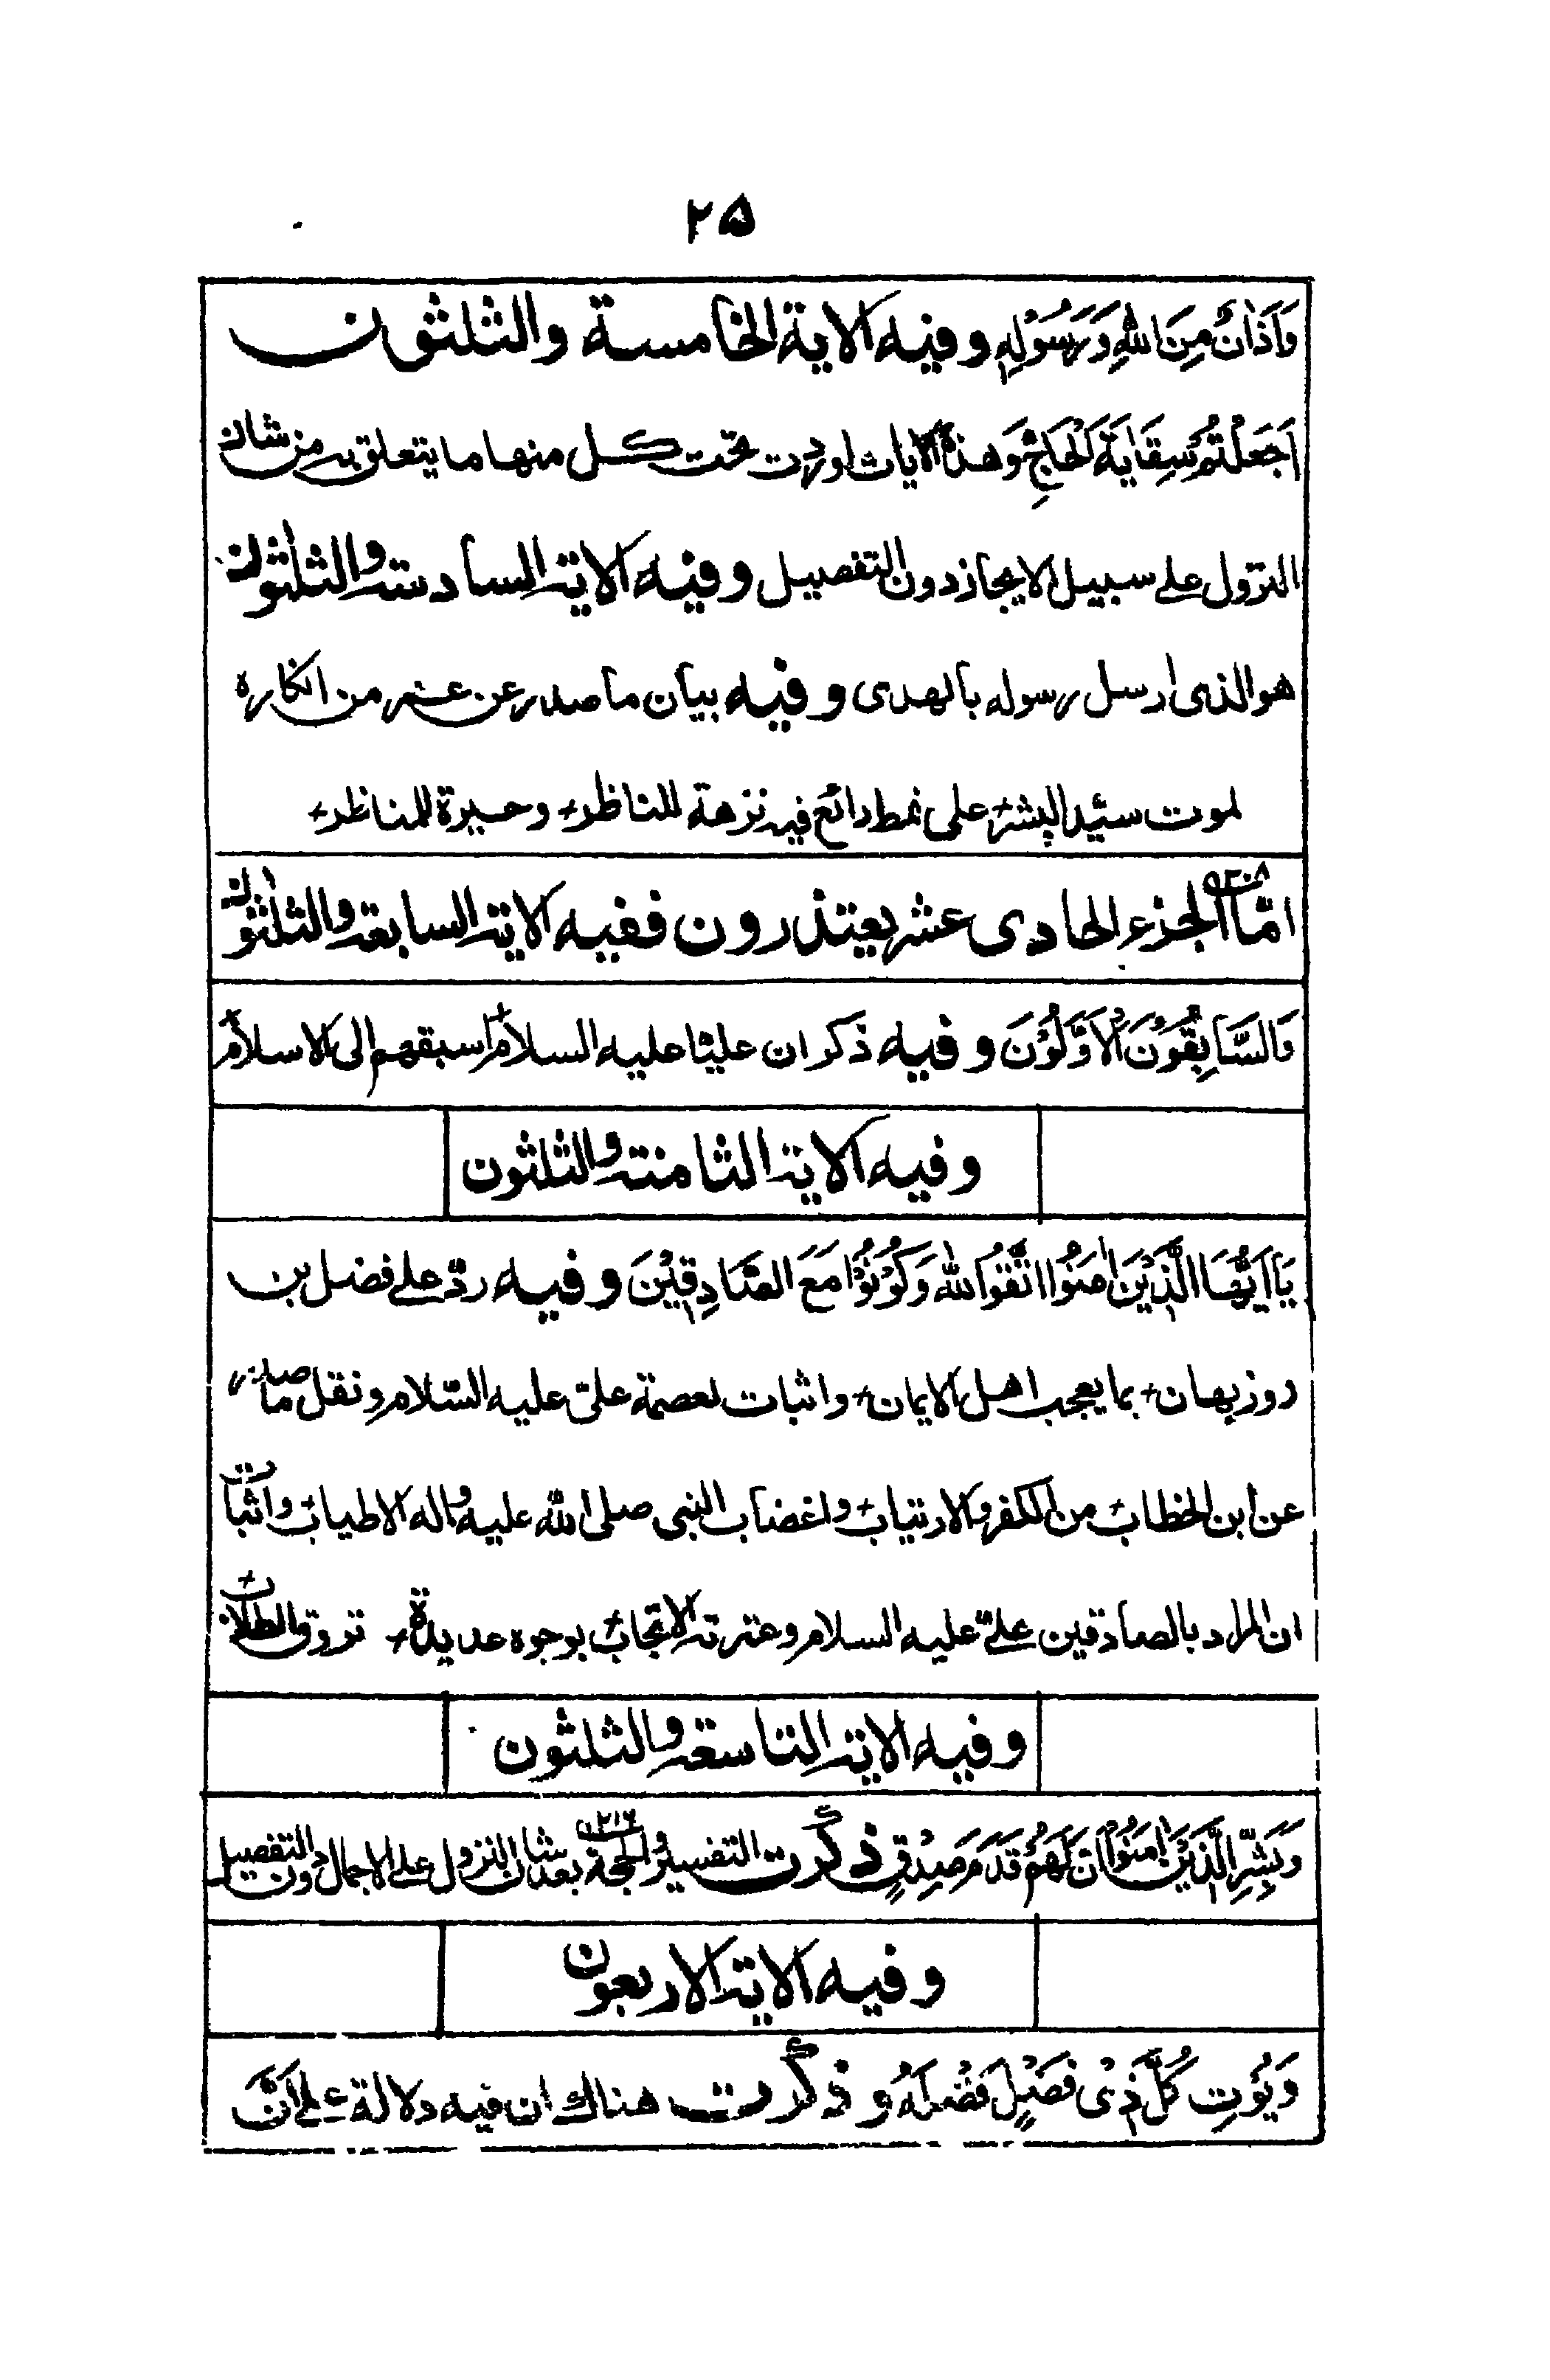 ۲۵
وَاَذَانٌ مِنَ اللهِ وَرَسُوْلِهٖ وفيه الاية الخامسة والثلثون
اَجَعَلْتُمْ سِقَايَةَ الْحَاجِّ وَهذه الايات اوردت تحت كل منها ما يتعلق به من شان
النزول على سبيل الايجاز دون التفصيل وفيه الاية السادسة والثلثون
هوالذى ارسل رسوله بالهدى وفيه بيان ما صدر عن عمر من انكاره
لموت سيّد البشر علی نمط رائع فيه نزهة للناظر وحيرة للمناظر
امّا الجزء الحادى عشر يعتذرون ففيه الاية السابعة والثلثون
وَالسَّابِقُوْنَ الْاَوَّلُوْنَ وفيه ذكر ان عليّا عليه السلام اسبقهم الى الاسلام
وفيه الاية الثامنة والثلثون
يَا اَيُّهَا الَّذِيْنَ اٰمَنُوا اتَّقُوا اللهَ وَكُوْنُوْا مَعَ الصَّادِقِيْنَ وفيه ردّ على فضل بن
روزبهان بما يعجب اهل الايمان واثبات لعصمة علىّ عليه السّلام ونقل ما صدر
عن ابن الخطاب من الكفر والارتياب واغضاب النبى صلى الله عليه واله الاطياب واثبات
ان المراد بالصادقين علىّ عليه السلام وعترته الانجاب بوجوه عديدة تروق
وفيه الاية التاسعة والثلثون
وَبَشِّرِ الَّذِيْنَ اٰمَنُوْا اَنَّ لَهُمْ قَدَمَ صِدْقٍ ذكرت التفسير والحجة بعد شان النزول على الاجمال دون التفصيل
وفيه الاية الاربعون
وَيُؤْتِ كُلَّ ذِىْ فَضْلٍ فَضْلَهُ وذكرت هناك ان فيه دلالة على اَنَّ